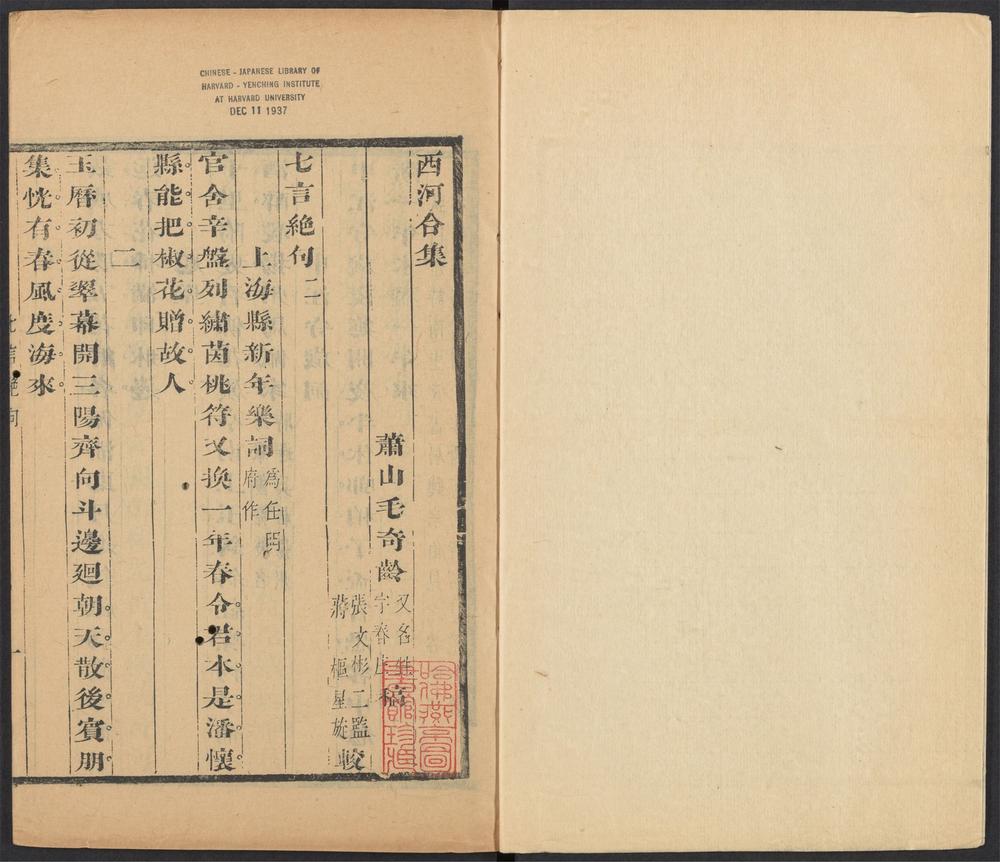 CHINESE - JAPANESE LIBRARY OF
HARVARD - YENCHING INSTITUTE
AT HARVARD UNIVERSITY
DEC 11 1937
西河合集
蕭山毛奇齡 又名甡 字春 稿
張文彬二監
蔣樞星旋 較
七言絶句二
上海縣新年樂詞 爲任
府作
官舍辛盤列繡茵桃符又换一年春令君本是潘懷
縣能把椒花贈故人
二
玉曆初從翠幕開三陽齊向斗邊廻朝天散後賓朋
集恍有春風度海來
七言絶句 一
哈佛燕京圖書館珍藏